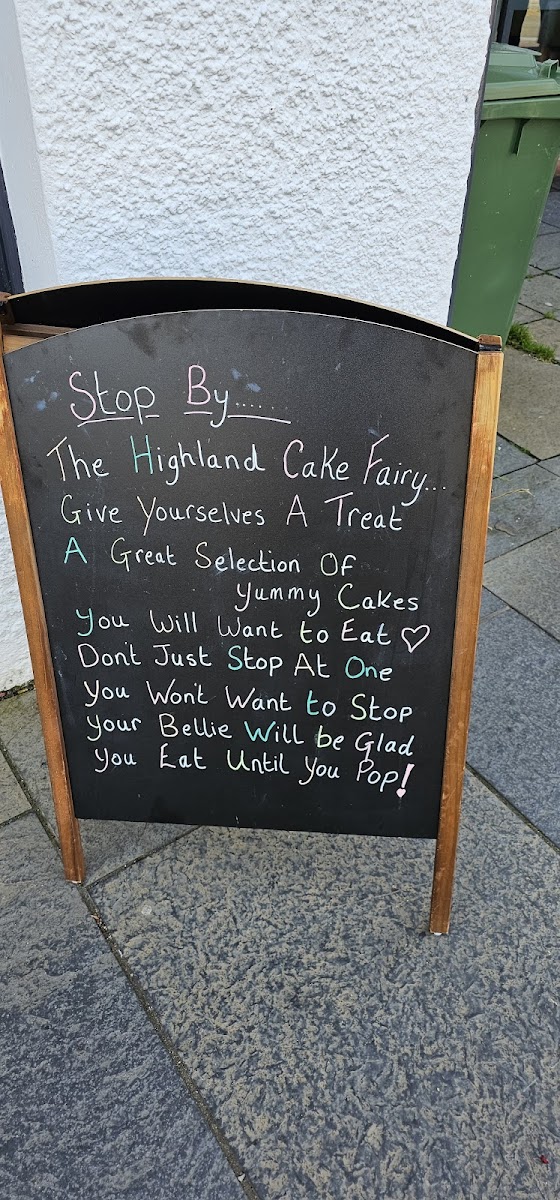 Stop By......
The Highland Cake Fairy...
Give Yourselves A Treat
A Great Selection Of
Yummy Cakes
You Will Want to Eat ♡
Don't Just Stop At One
You Won't Want to Stop
Your Bellie Will be Glad
You Eat Until You Pop!